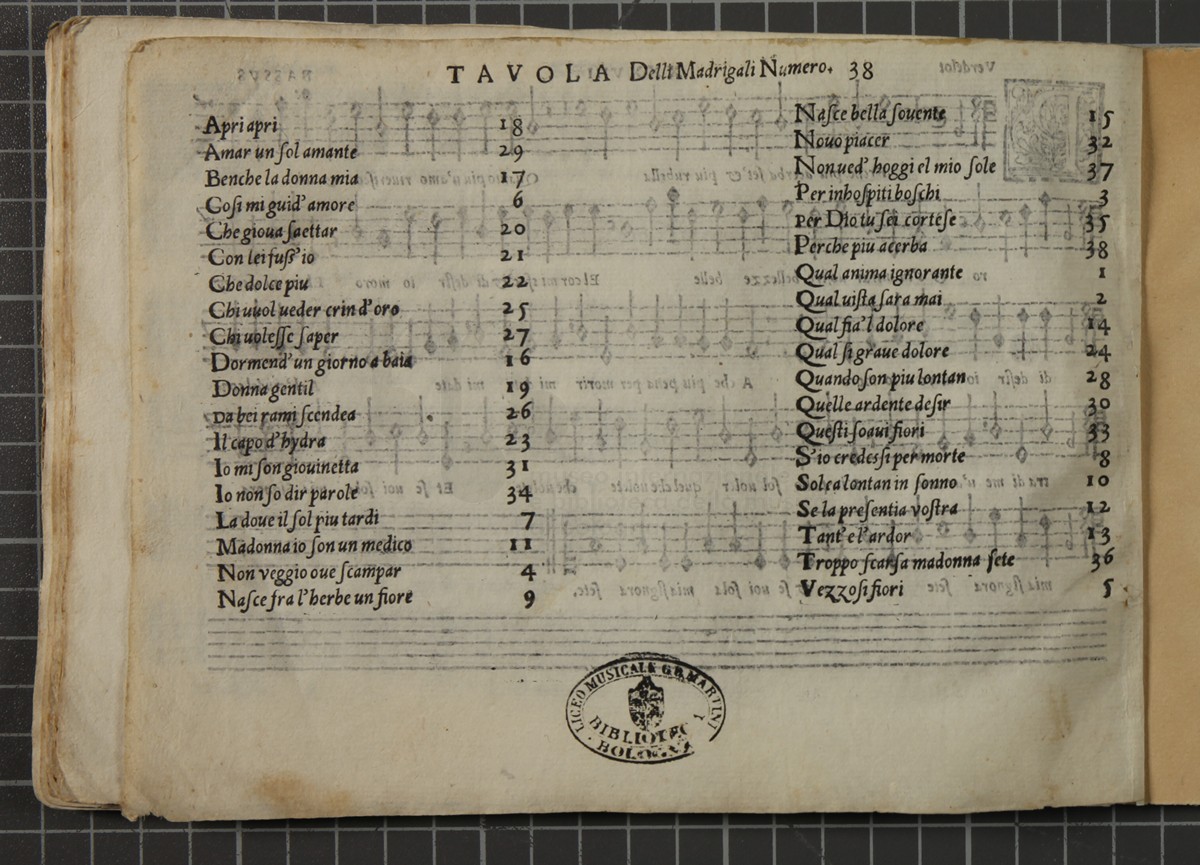 TAVOLA Delli Madrigali Numero. 38
Apri apri 18
Amar un ſol amante 29
Benche la donna mia 17
Coſi mi guid'amore 6
Che gioua ſaettar 20
Con lei fuſſ'io 21
Che dolce piu 22
Chi uuol ueder crin d'oro 25
Chi uoleſſe ſaper 27
Dormend'un giorno a baia 16
Donna gentil 19
Da bei rami ſcendea 26
Il capo d'hydra 23
Io mi ſon giouinetta 31
Io non ſo dir parole 34
La doue il ſol piu tardi 7
Madonna io ſon un medico 11
Non veggio oue ſcampar 4
Naſce fra l'herbe un fiore 9
Naſce bella ſouente 15
Nouo piacer 32
Non ued'hoggi el mio ſole 37
Per inhoſpiti boſchi 3
Per Dio tu ſei corteſe 35
Perche piu acerba 38
Qual anima ignorante 1
Qual uiſta ſara mai 2
Qual fia'l dolore 14
Qual ſi graue dolore 24
Quando ſon piu lontan 28
Quelle ardente deſir 30
Queſti ſoaui fiori 33
S'io credeſſi per morte 8
Sol ca lontan in ſonno 10
Se la preſentia voſtra 12
Tant'e l'ardor 13
Troppo ſcarſa madonna ſete 36
Vezzoſi fiori 5
LICEO MUSICALE G.B. MARTINI
BIBLIOTEC
BOLOGNA